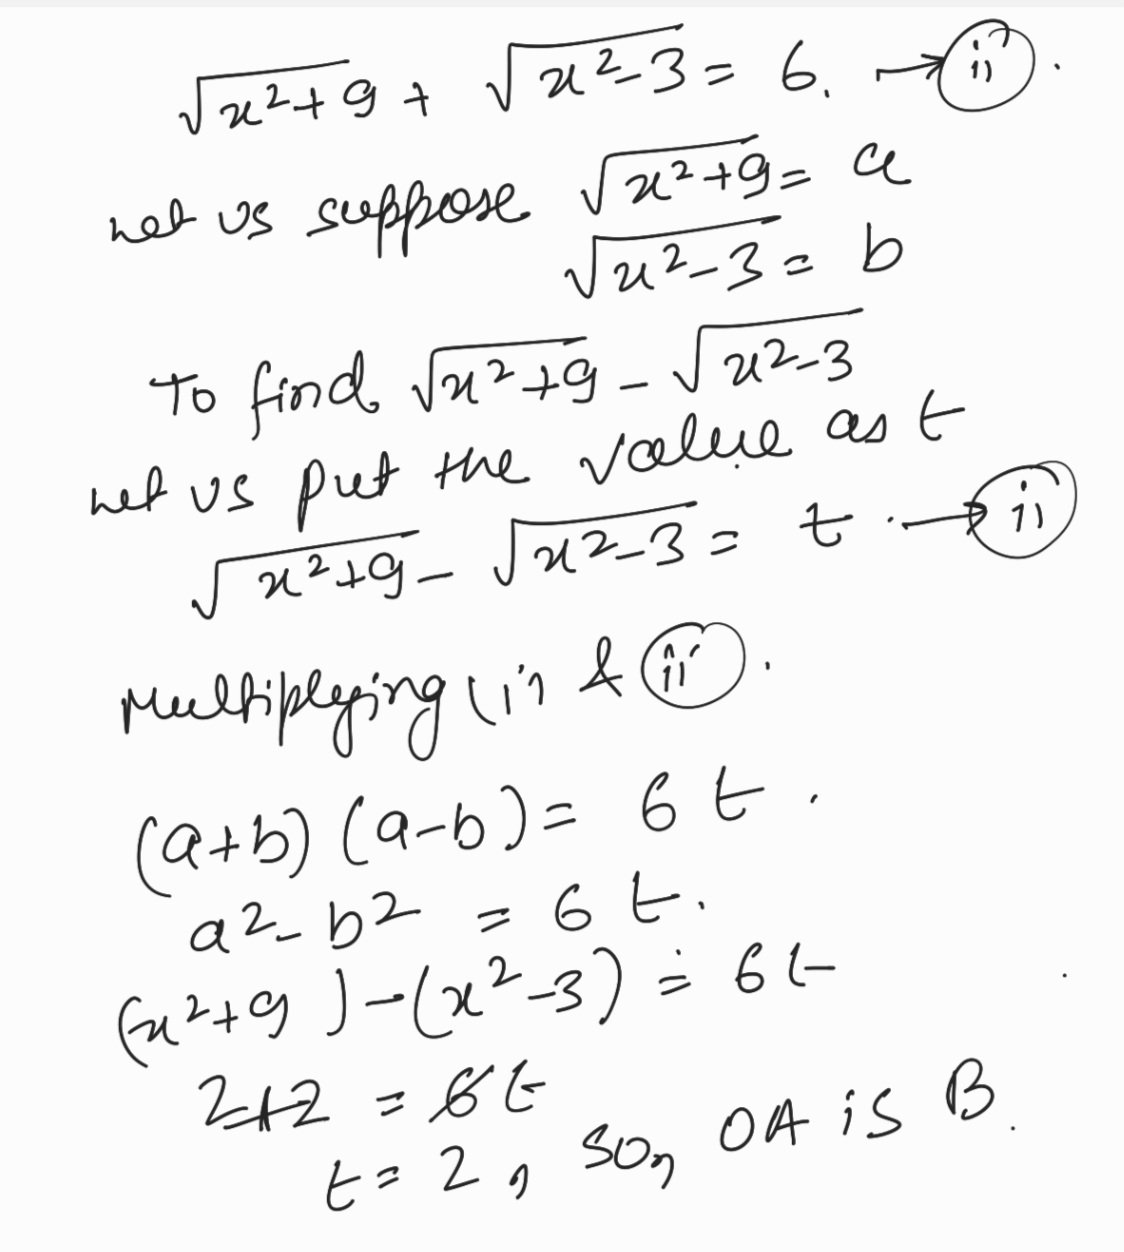 √(x²+9) + √(x²-3) = 6. → (ii) .
Let us suppose √(x²+9) = a
√(x²-3) = b
To find √(x²+9) - √(x²-3)
Let us put the value as t
√(x²+9) - √(x²-3) = t . → (ii)
Multiplying (i) & (ii) .
(a+b) (a-b) = 6 t .
a² - b² = 6 t.
(x²+9) - (x²-3) = 6t
= 6t
t = 2, so, OA is B.